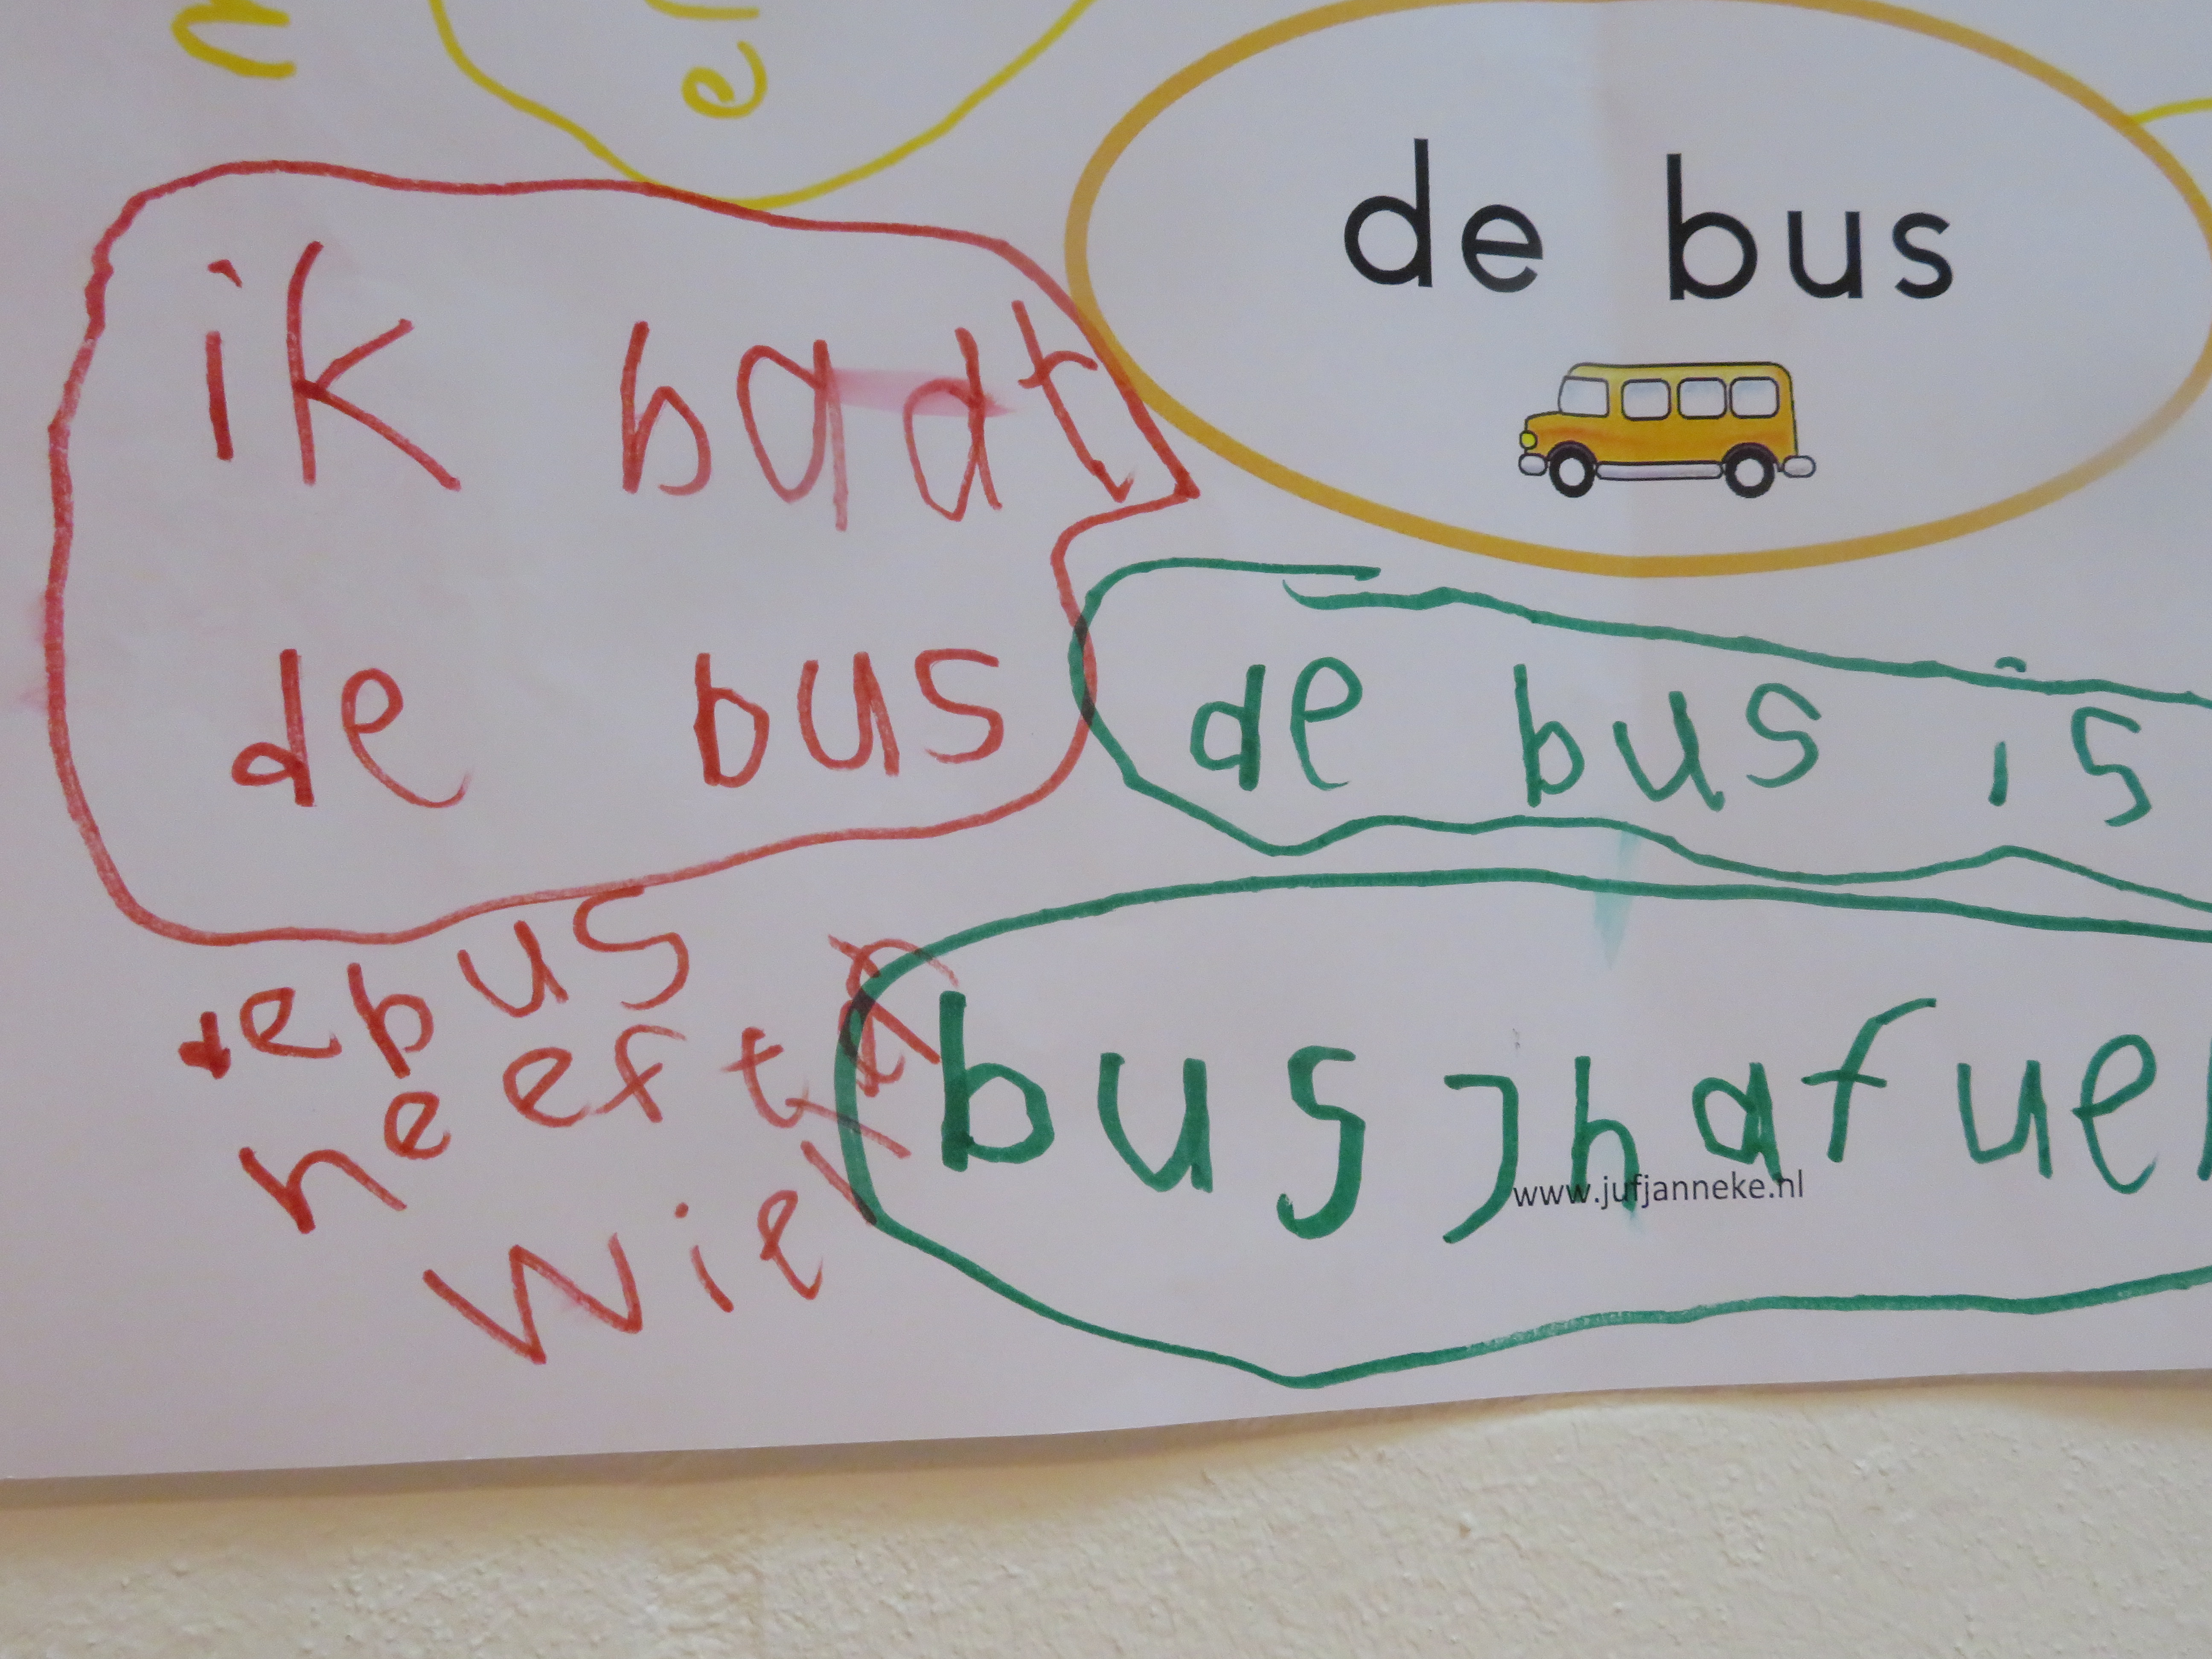 de bus
ik baat
de bus
de bus is
de bus
heeft
wiel
bus jhafuel
www.jufjanneke.nl